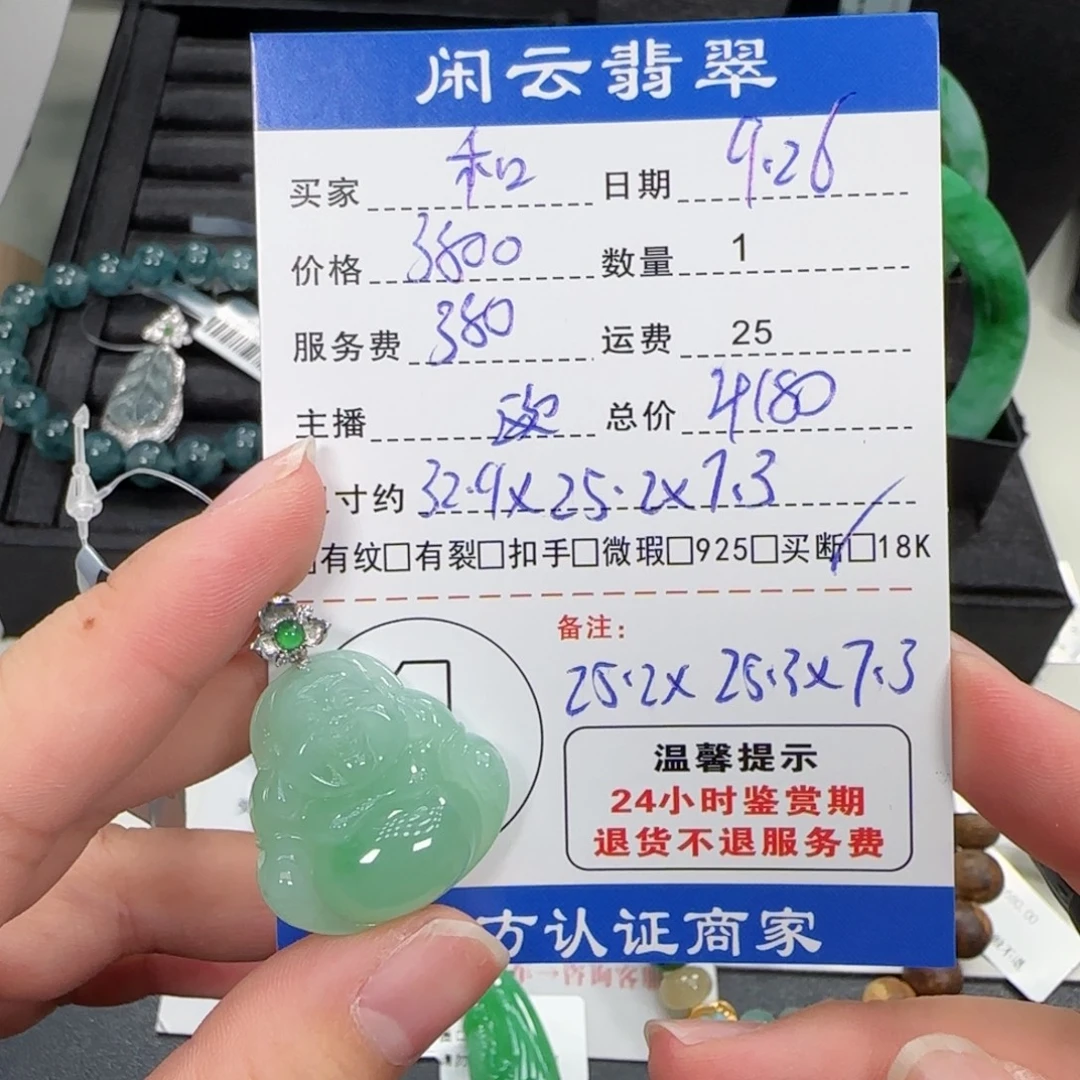 闲云翡翠
买家 和 日期 9.26
价格 3800 数量 1
服务费 380 运费 25
主播 总价 4180
寸约 32.9x25.2x7.3
有纹□有裂□扣手□微瑕□925□买断□18K
备注:
25.2x 25.3x7.3
温馨提示
24小时鉴赏期
退货不退服务费
方认证商家